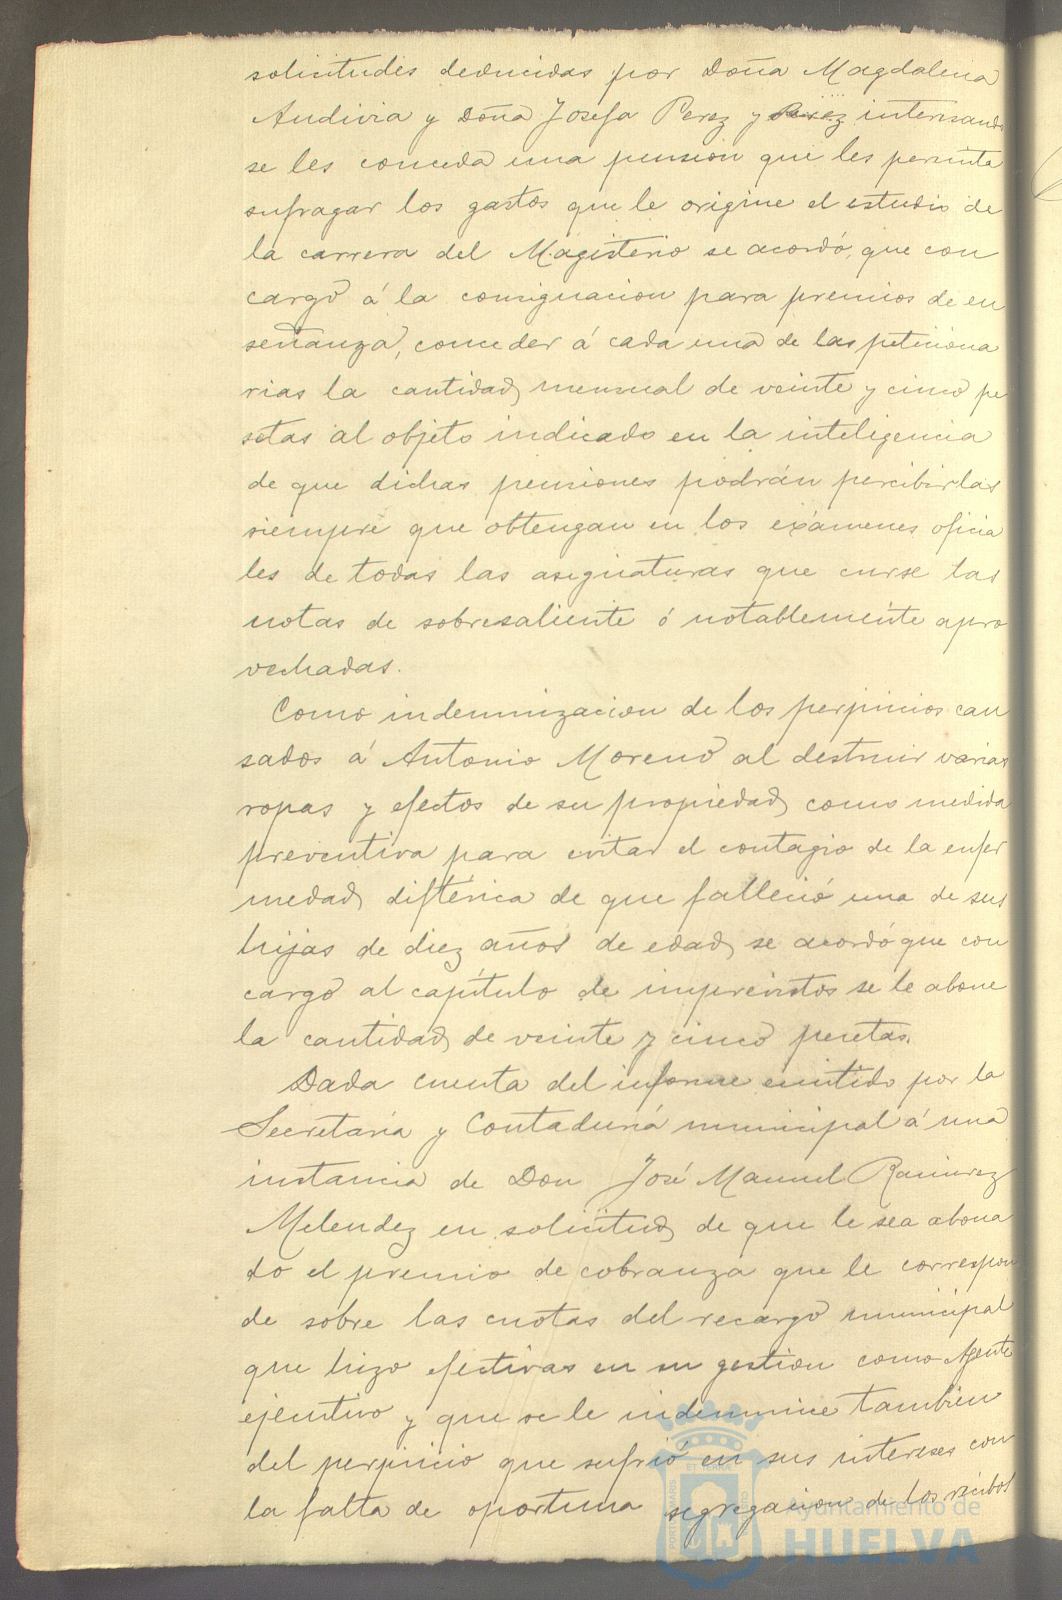 solicitudes deducidas por Doña Magdalena
Audivia y Doña Josefa Perez y Perez interesando
se les conceda una pension que les permita
sufragar los gastos que le origine el estudio de
la carrera del Magisterio se acordó, que con
cargo á la consignacion para premios de en
señanza, conceder á cada una de las peticiona
rias la cantidad mensual de veinte y cinco pe
setas al objeto indicado en la inteligencia
de que dichas pensiones podrán percibirlas
siempre que obtengan en los exámenes oficia
les de todas las asignaturas que curse las
notas de sobresaliente ó notablemente apro
vechadas.
Como indemnizacion de los perjuicios cau
sados á Antonio Moreno al destruir varias
ropas y efectos de su propiedad como medida
preventiva para evitar el contagio de la enfer
medad diftérica de que falleció una de sus
hijas de diez años de edad se acordó que con
cargo al capítulo de imprevistos se le abone
la cantidad de veinte y cinco pesetas.
Dada cuenta del informe emitido por la
Secretaria y Contaduría municipal á una
instancia de Don José Manuel Ramirez
Melendez en solicitud de que le sea abona
do el premio de cobranza que le correspon
de sobre las cuotas del recargo municipal
que hizo efectivas en su gestion como Agente
ejecutivo y que se le indemnice tambien
del perjuicio que sufrió en sus intereses con
la falta de oportuna segregacion de los recibos
Ayuntamiento de
HUELVA